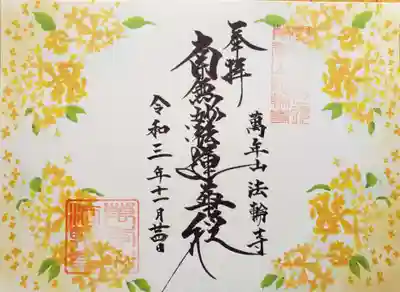 奉拝
萬年山 法輪寺
南無妙法蓮華経
令和三年十一月廿四日